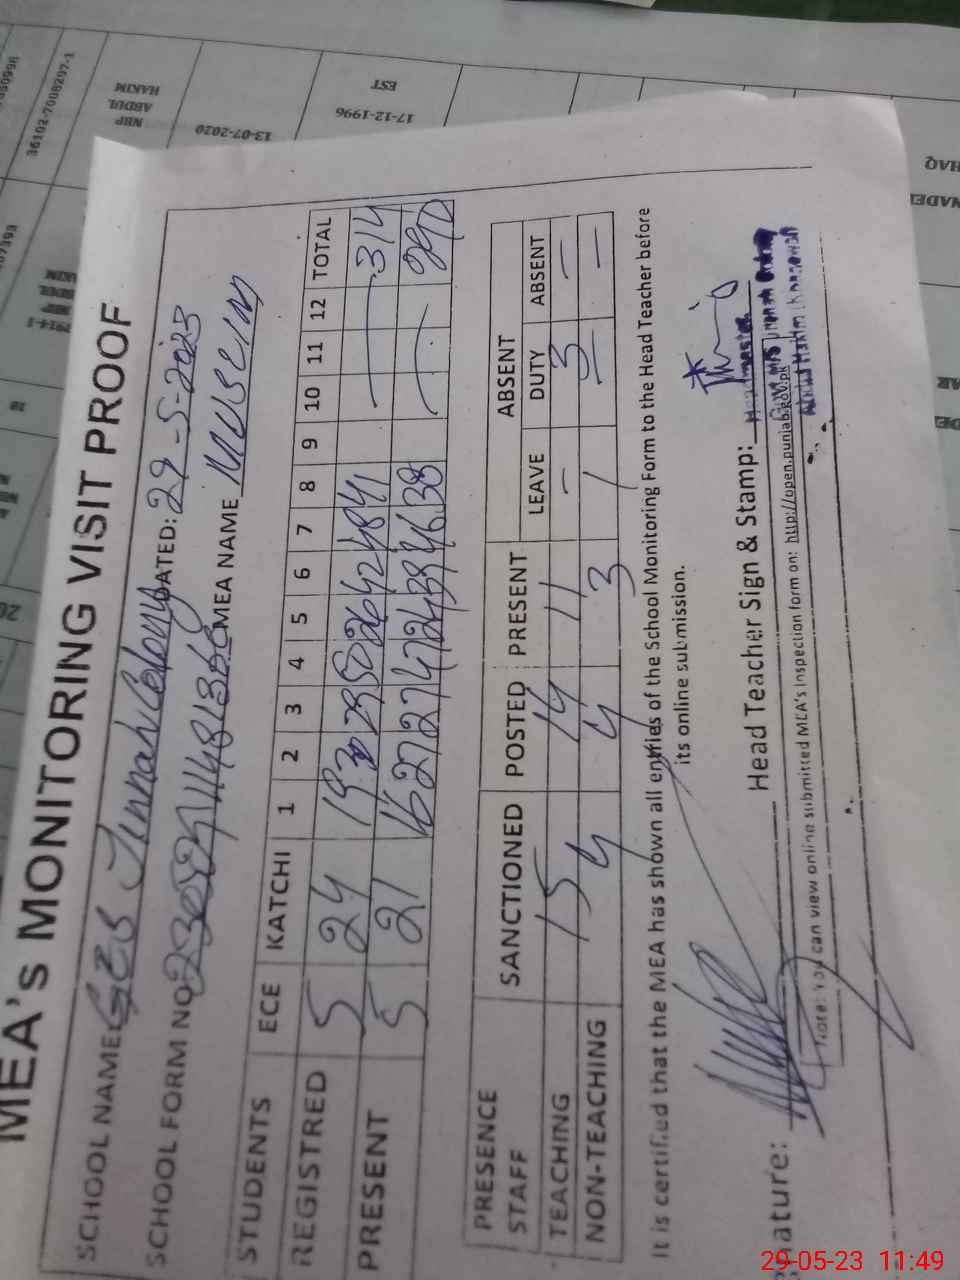 MEA's MONITORING VISIT PROOF
SCHOOL NAME GES Jinnah Colony DATED: 29-5-2023
SCHOOL FORM NO MEA NAME MUSLIM
STUDENTS ECE KATCHI 1 2 3 4 5 6 7 8 9 10 11 12 TOTAL
REGISTRED 5 24 19 30 29 50 26 42 48 41 314
PRESENT 5 21 16 27 27 47 24 39 46 38 290
PRESENCE STAFF SANCTIONED POSTED PRESENT ABSENT
LEAVE DUTY ABSENT
TEACHING 15 14 11 - 3 -
NON-TEACHING 4 4 3 / - -
It is certified that the MEA has shown all entries of the School Monitoring Form to the Head Teacher before
its online submission.
Signature: Head Teacher Sign & Stamp:
Headmaster
Govt M/S Jinnah Colony
Abdul Hakim (Khanewal)
Note: You can view online submitted MEA's Inspection form on: http://open.punjab.gov.pk
36102-7008297-1
NBP
ABDUL
HAKIM
13-07-2020
17-12-1996
EST
29-05-23 11:49